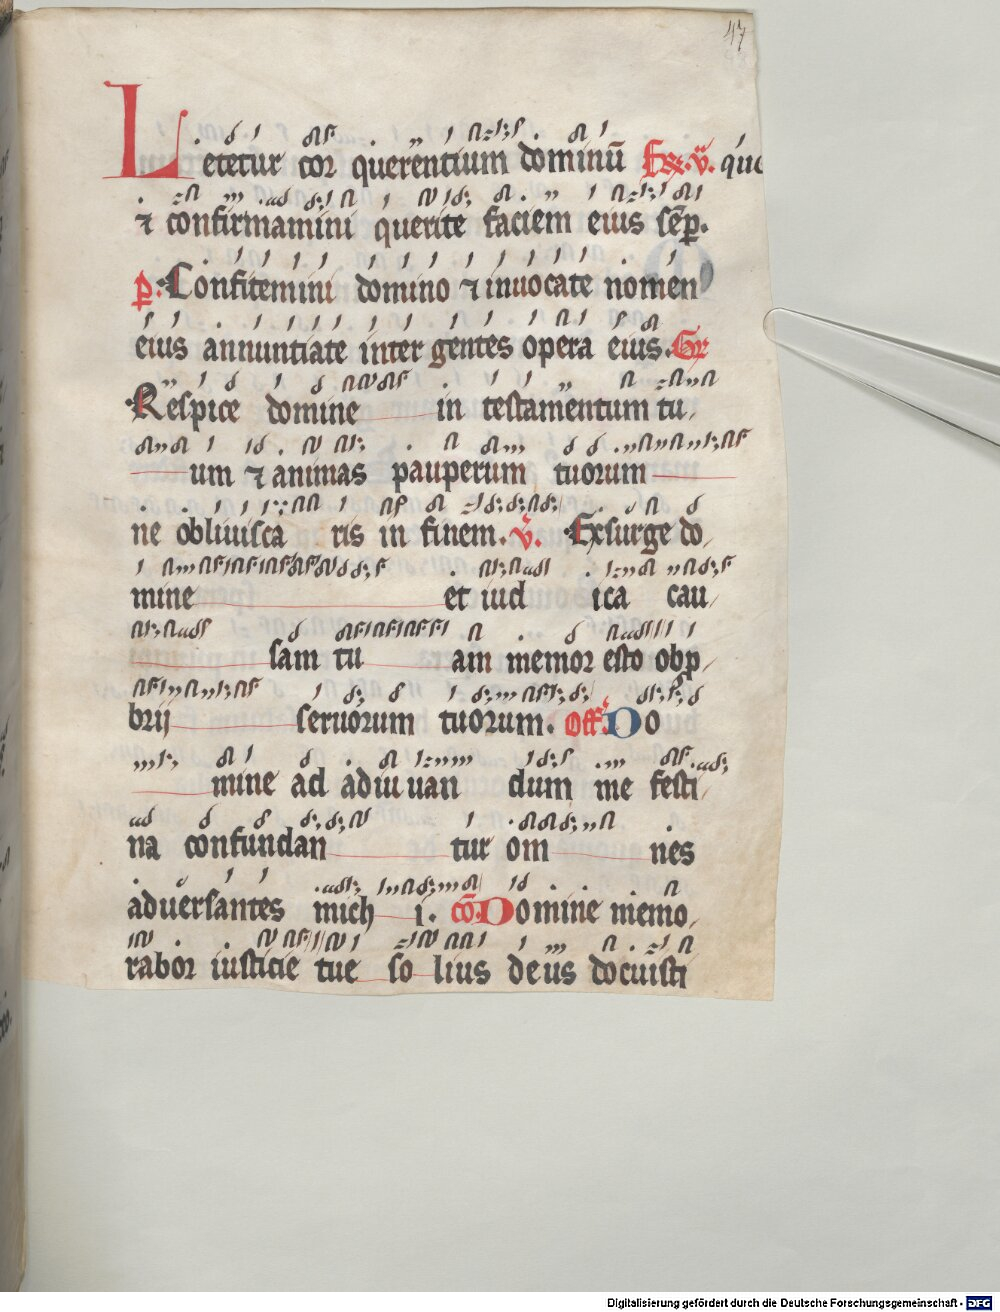 47
Letetur cor querentium dominū Fx̄. v̄. que
⁊ confirmamini querite faciem eius sēp.
p̄. Confitemini domino ⁊ inuocate nomen
eius annuntiate inter gentes opera eius. Gr
Respice domine in testamentum tu,
um ⁊ animas pauperum tuorum
ne obliuisca ris in finem. v̄. Exsurge do,
mine et iud ica cau,
sam tu am memor esto obp,
brij seruorum tuorum. Off. Do
mine ad adiuuan dum me festi,
na confundan tur om nes
aduersantes mich i. cō. Domine memo,
rabor iusticie tue so lius deus docuisti
Digitalisierung gefördert durch die Deutsche Forschungsgemeinschaft - DFG